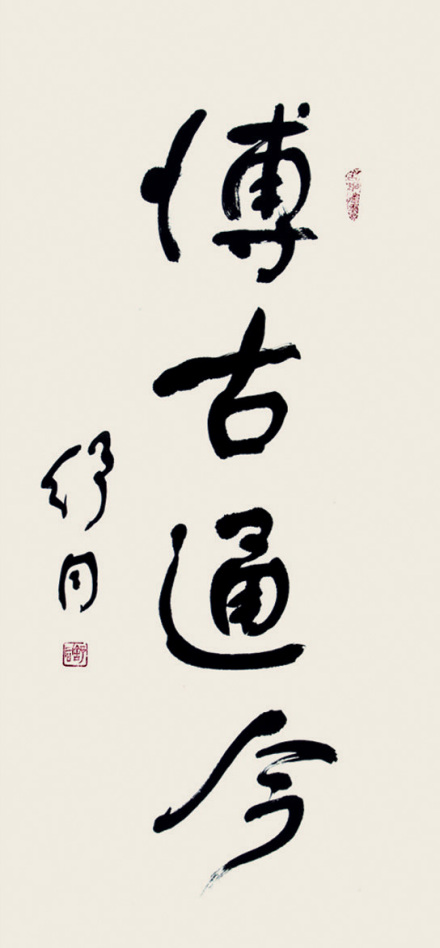 博古通今
舒同